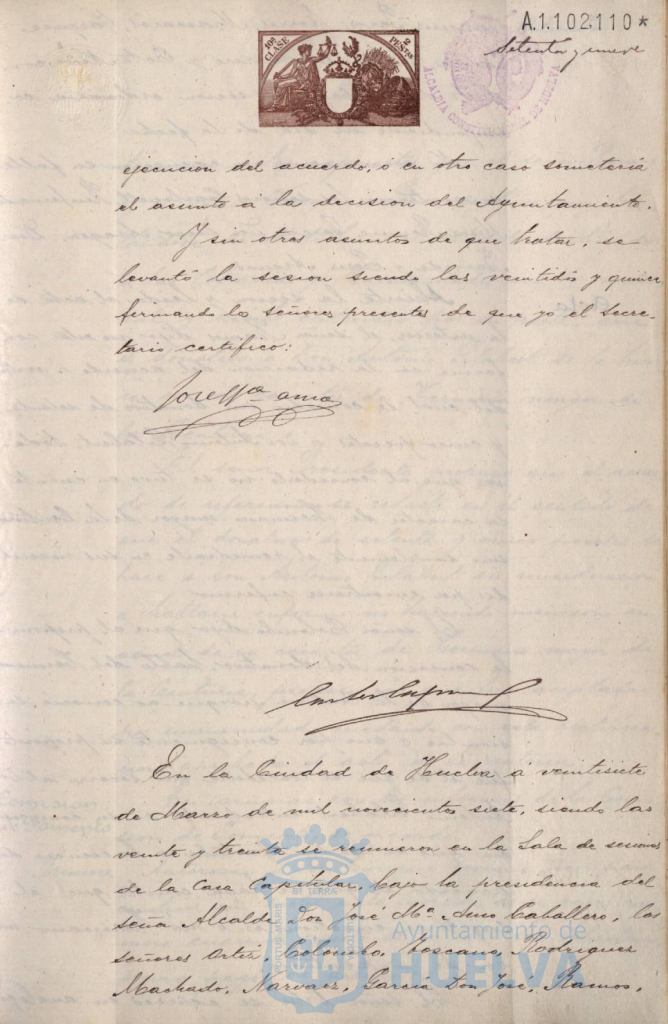 10ª CLASE
2 PESETAS
A.1.102.110*
Setenta y nueve
ALCALDIA CONSTITUCIONAL DE HUELVA
ejecucion del acuerdo, ó en otro caso sometería
el asunto á la decision del Ayuntamiento.
Y sin otros asuntos de que tratar, se
levantó la sesion siendo las veintidós y quince
firmando los señores presentes de que yo el Secre-
tario certifico:
En la Ciudad de Huelva á veintisiete
de Marzo de mil novecientos siete, siendo las
veinte y treinta se reunieron en la Sala de sesiones
de la Casa Capitular, bajo la presidencia del
señor Alcalde Don José Mª. Amo Caballero, los
señores Ortiz, Colombo, Toscano, Rodriguez
Machado, Narvaez, García Don José, Ramos,
PORTUS MARIS ET TERRÆ CUSTODIA
Ayuntamiento de
HUELVA